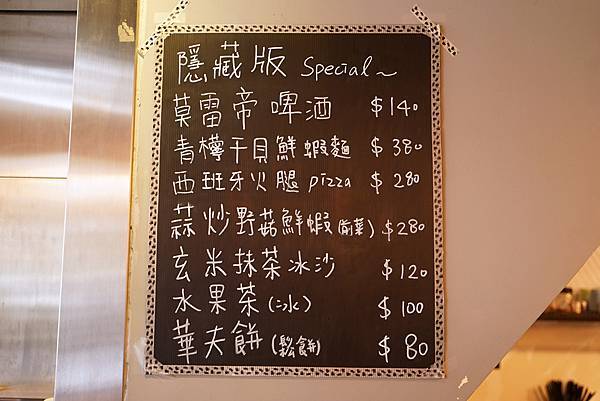 隱藏版 Special~
莫雷帝啤酒 $140
青檸干貝鮮蝦麵 $380
西班牙火腿 pizza $280
蒜炒野菇鮮蝦(前菜) $280
玄米抹茶冰沙 $120
水果茶(冰) $100
華夫餅(鬆餅) $80